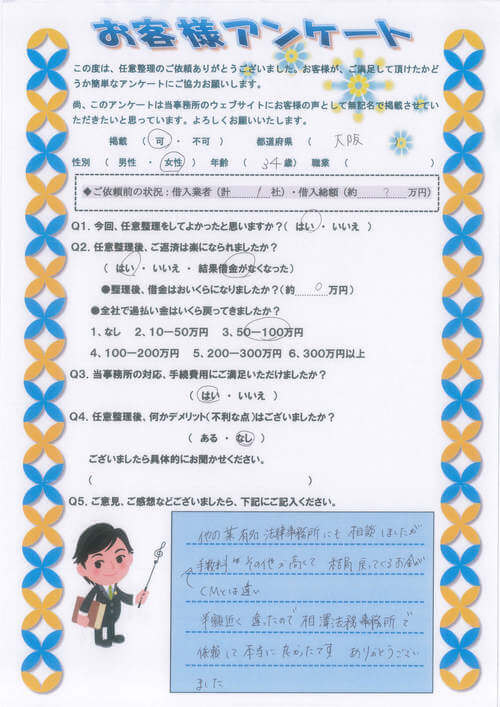 お客様アンケート
この度は、任意整理のご依頼ありがとうございました。お客様が、ご満足して頂けたかど
うか簡単なアンケートにご協力お願いします。
尚、このアンケートは当事務所のウェブサイトにお客様の声として無記名で掲載させてい
ただきたいと思っています。よろしくお願いいたします。
掲載 ( 可 ・ 不可 ) 都道府県 ( 大阪 )
性別 ( 男性 ・ 女性 ) 年齢 ( 34歳) 職業 ( )
◆ご依頼前の状況：借入業者(計 1 社)・借入総額(約 ? 万円)
Q1. 今回、任意整理をしてよかったと思いますか？( はい ・ いいえ )
Q2. 任意整理後、ご返済は楽になられましたか？
( はい ・ いいえ ・ 結果借金がなくなった )
●整理後、借金はおいくらになりましたか？(約 0 万円)
●全社で過払い金はいくら戻ってきましたか？
1、なし 2、10－50万円 3、50－100万円
4、100－200万円 5、200－300万円 6、300万円以上
Q3. 当事務所の対応、手続費用にご満足いただけましたか？
( はい ・ いいえ )
Q4. 任意整理後、何かデメリット(不利な点)はございましたか？
( ある ・ なし )
ございましたら具体的にお聞かせください。
( )
Q5. ご意見、ご感想などございましたら、下記にご記入ください。
他の某有名法律事務所にも 相談しましたが
手数料やその他が高くて 結局戻ってくるお金が
CMとは違い
半額近く違ったので 相澤法務事務所で
依頼して本当に良かったです ありがとうござい
ました